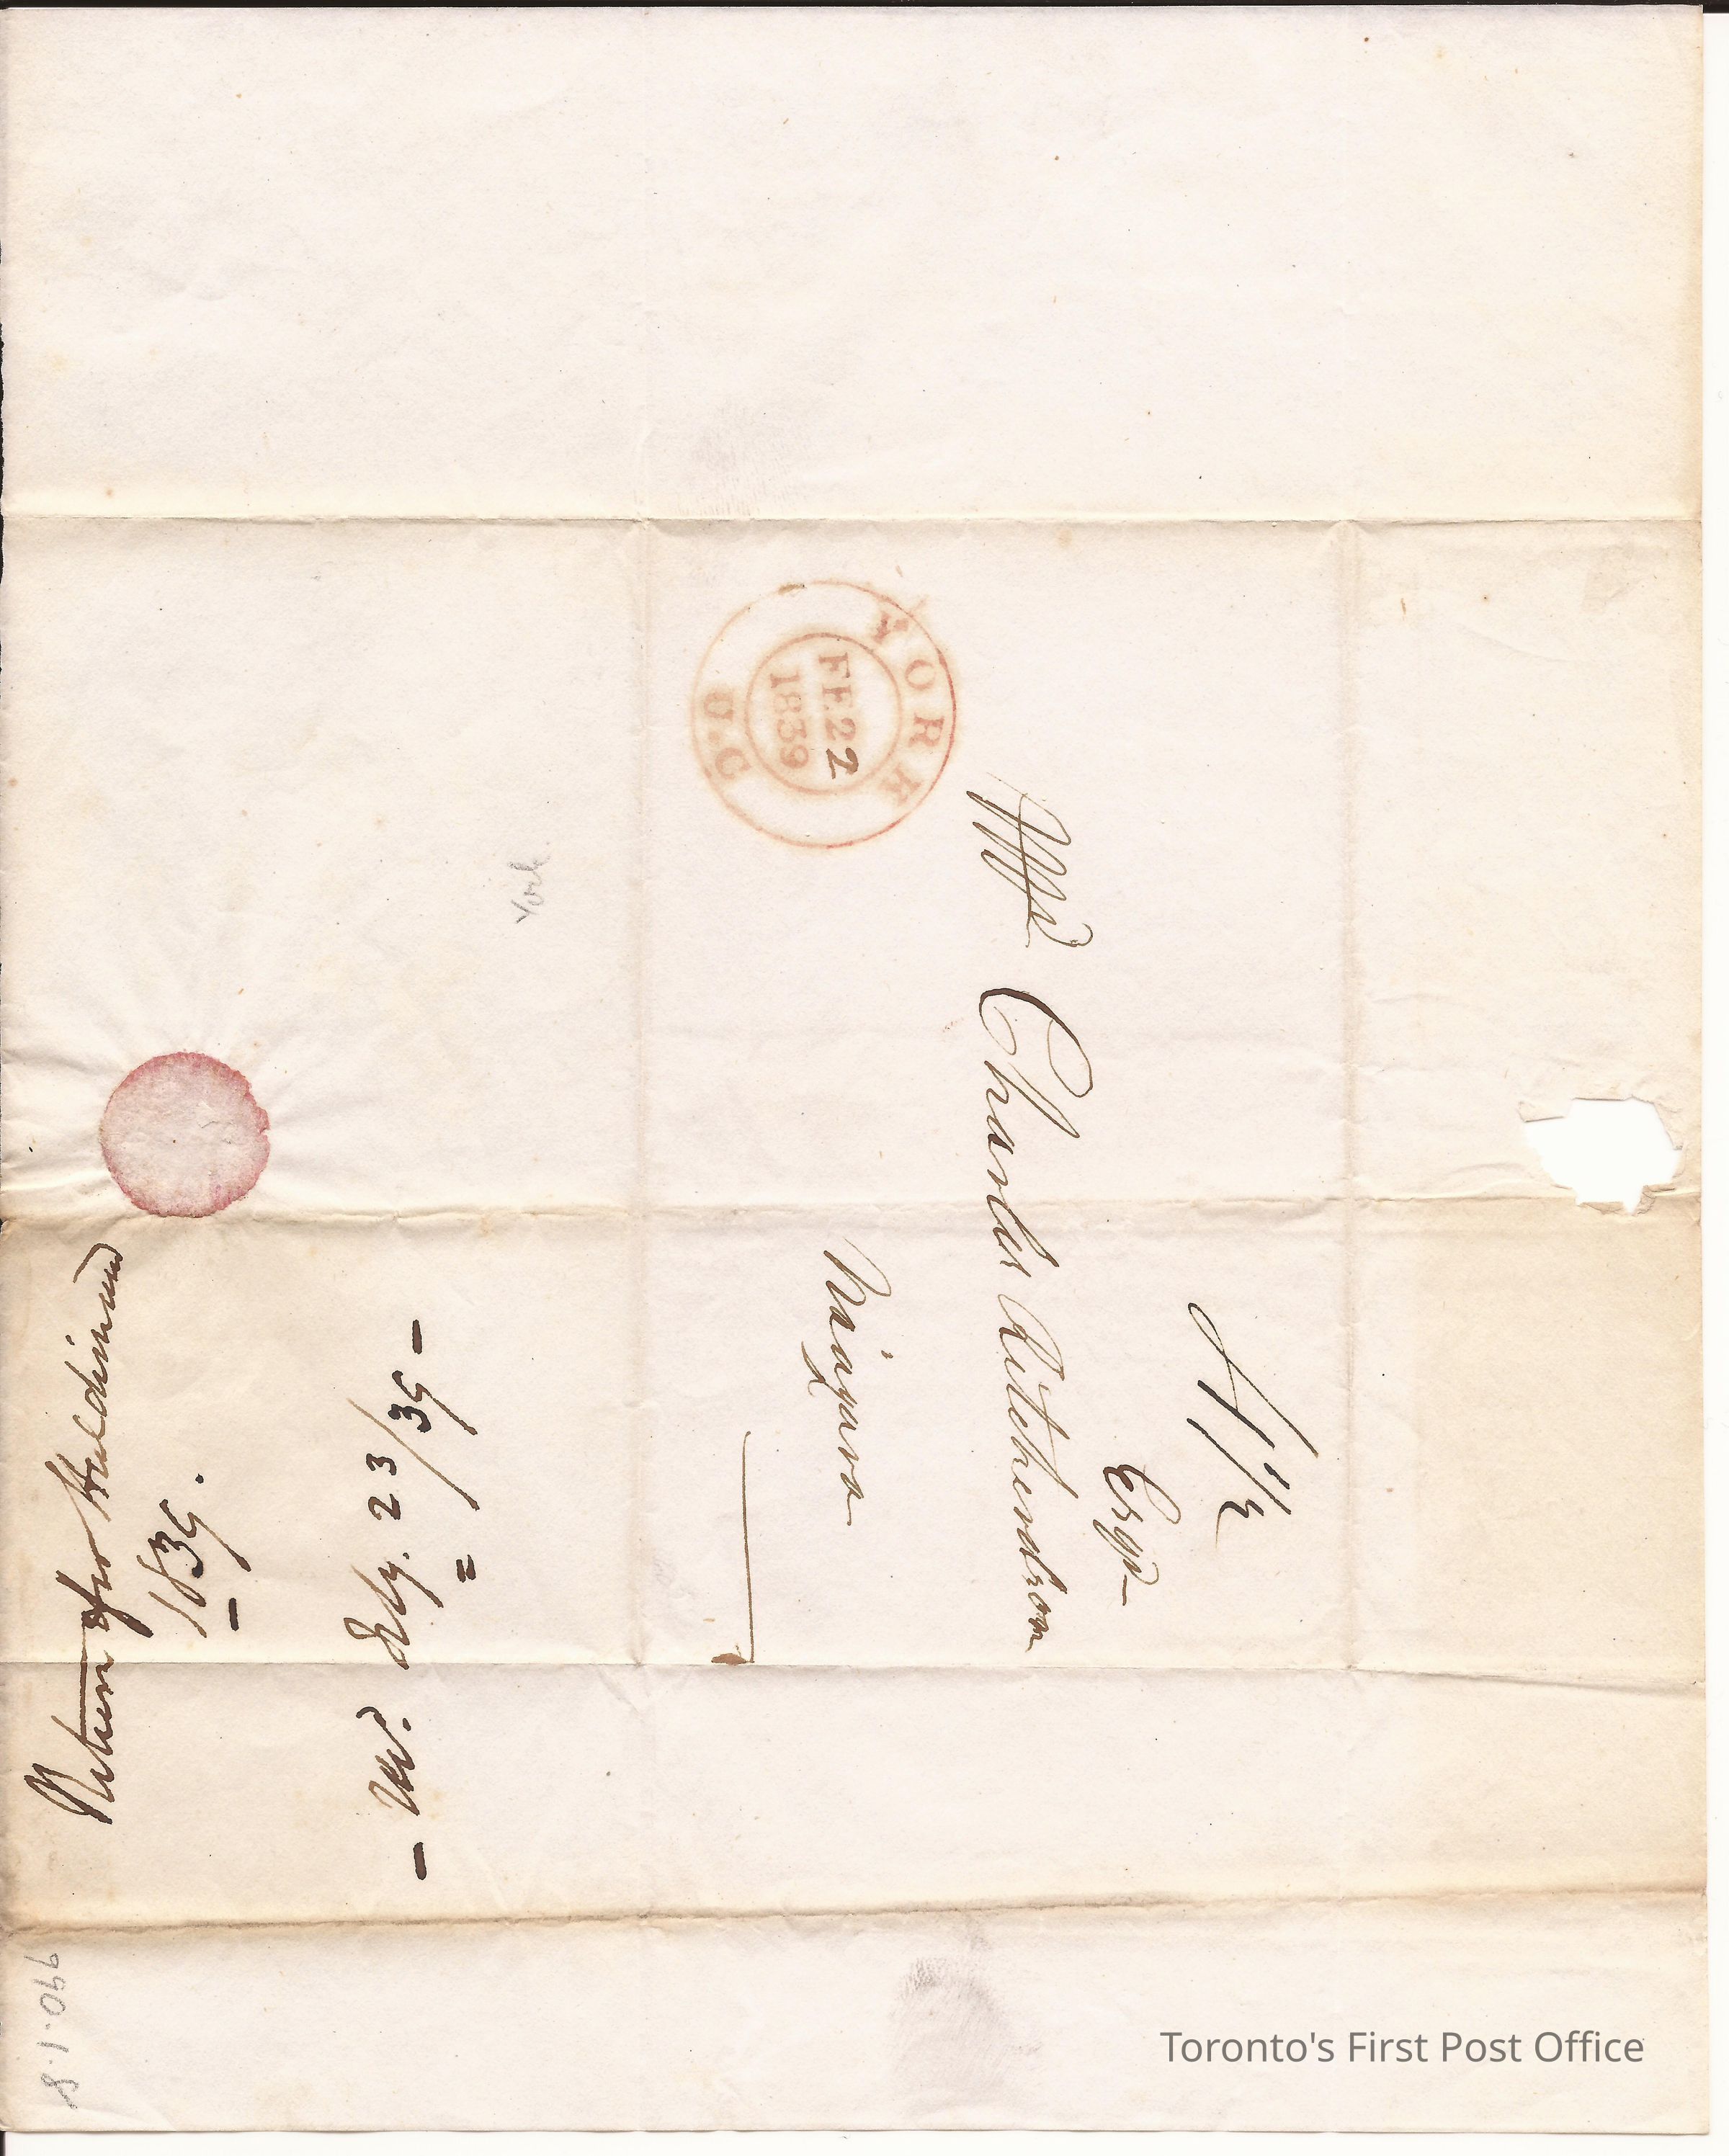 YORK
FE.22
1839
U.C
4 1/2
Charles Richardson
Esqr
Niagara
York
Return for Haldimand
1839.
- Recd. Feby. 23/39 -
990.1.8
Toronto's First Post Office